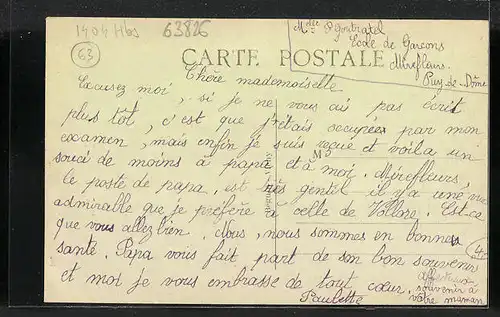 1404 Hbs
63826
63
Mlle
École de Garçons
Mirefleurs.
Puy-de-Dôme
CARTE POSTALE
Chère mademoiselle
Excusez moi, si je ne vous ai pas écrit
plus tôt, c'est que j'étais occupée par mon
examen, mais enfin je suis reçue et voila un
souci de moins à papa et à moi. Mirefleurs,
le poste de papa, est très gentil il y a une vue
admirable que je préfère à celle de Vollore. Est-ce
que vous allez bien. Nous, nous sommes en bonne
santé. Papa vous fait part de son bon souvenir
et moi je vous embrasse de tout cœur.
Paulette
souvenir à
votre maman